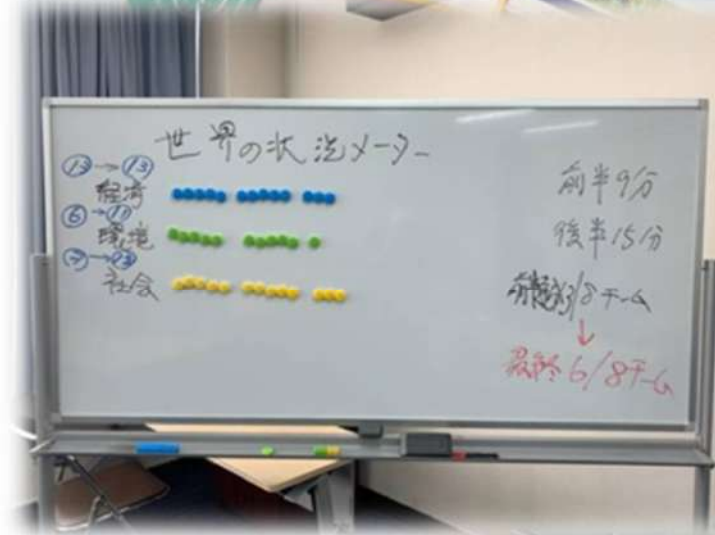 世界の状況メーター
⑬→⑬
経済
⑥→⑪
環境
→⑬
社会
前半9分
後半15分
3/8チーム
↓
最終6/8チーム